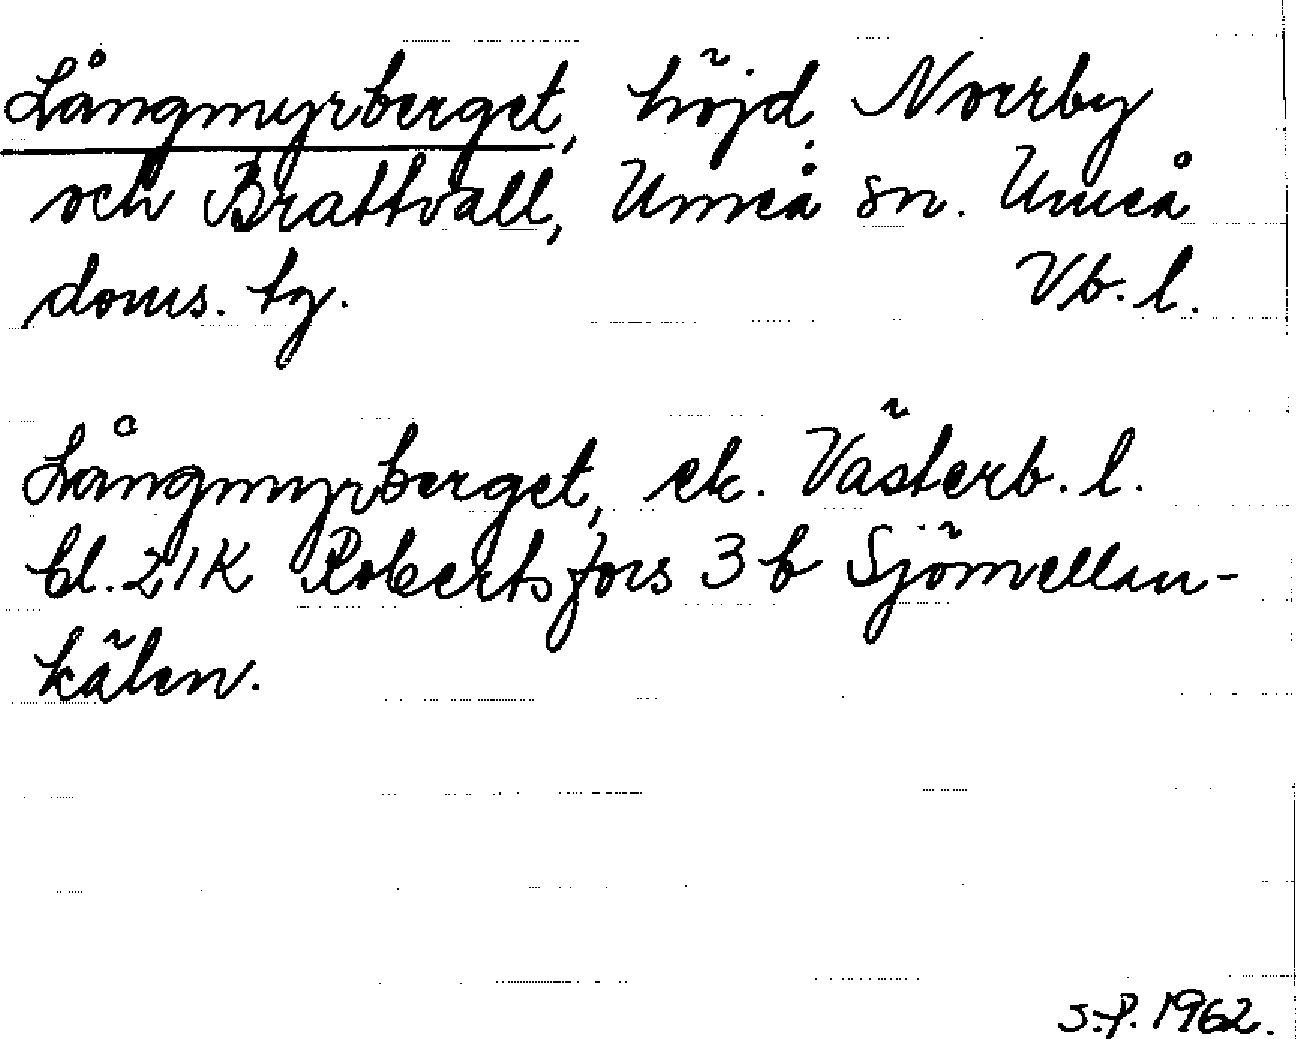 Långmyrberget, höjd, Norrby
och Brattvall, Umeå sn. Umeå
doms. tg. Vb. l.
Långmyrberget, ek. Västerb. l.
bl. 21K Robertsfors 3 b Sjömellan-
kälen.
S.P. 1962.